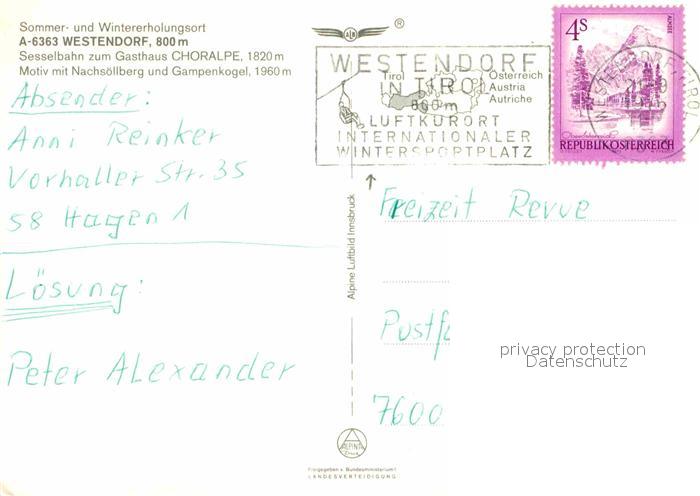 Sommer- und Wintererholungsort
A-6363 WESTENDORF, 800 m
Sesselbahn zum Gasthaus CHORALPE, 1820 m
Motiv mit Nachsöllberg und Gampenkogel, 1960 m
Absender:
Anni Reinker
Vorhaller Str. 35
58 Hagen 1
Lösung:
Peter Alexander
®
WESTENDORF
IN TIROL
Tirol
800 m
Österreich
Austria
Autriche
LUFTKURORT
INTERNATIONALER
WINTERSPORTPLATZ
4S
ALMSEE
Oberösterreich
REPUBLIK ÖSTERREICH
Alpine Luftbild Innsbruck
Freizeit Revue
Postf
7600
privacy protection
Datenschutz
ALPINA
Druck
Freigegeben v. Bundesministerium f.
LANDESVERTEIDIGUNG